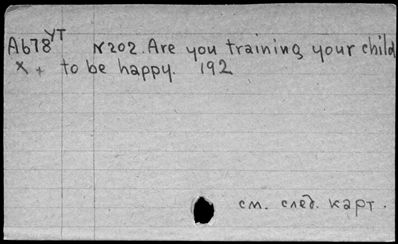 Ab78 УТ N202. Are you training your child
x + to be happy. 192
см. след. карт.